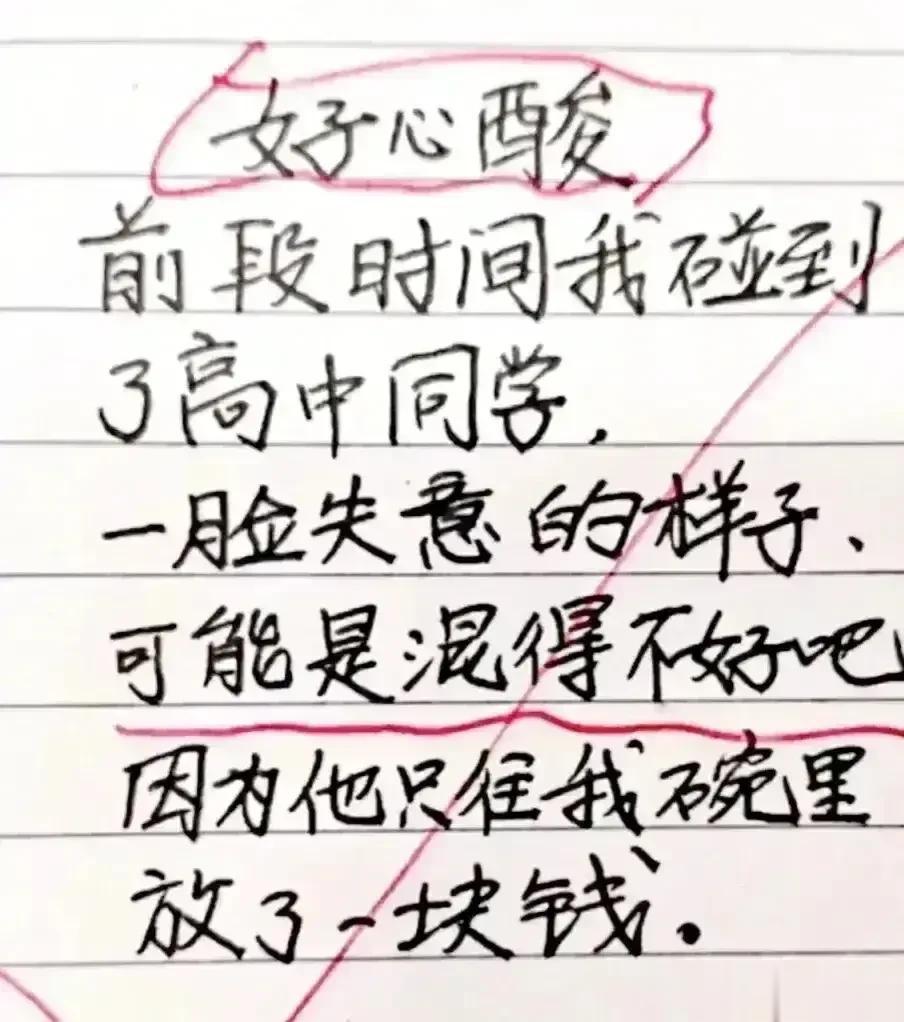 好心酸
前段时间我碰到
了高中同学.
一脸失意的样子、
可能是混得不好吧
因为他只往我碗里
放了一块钱.